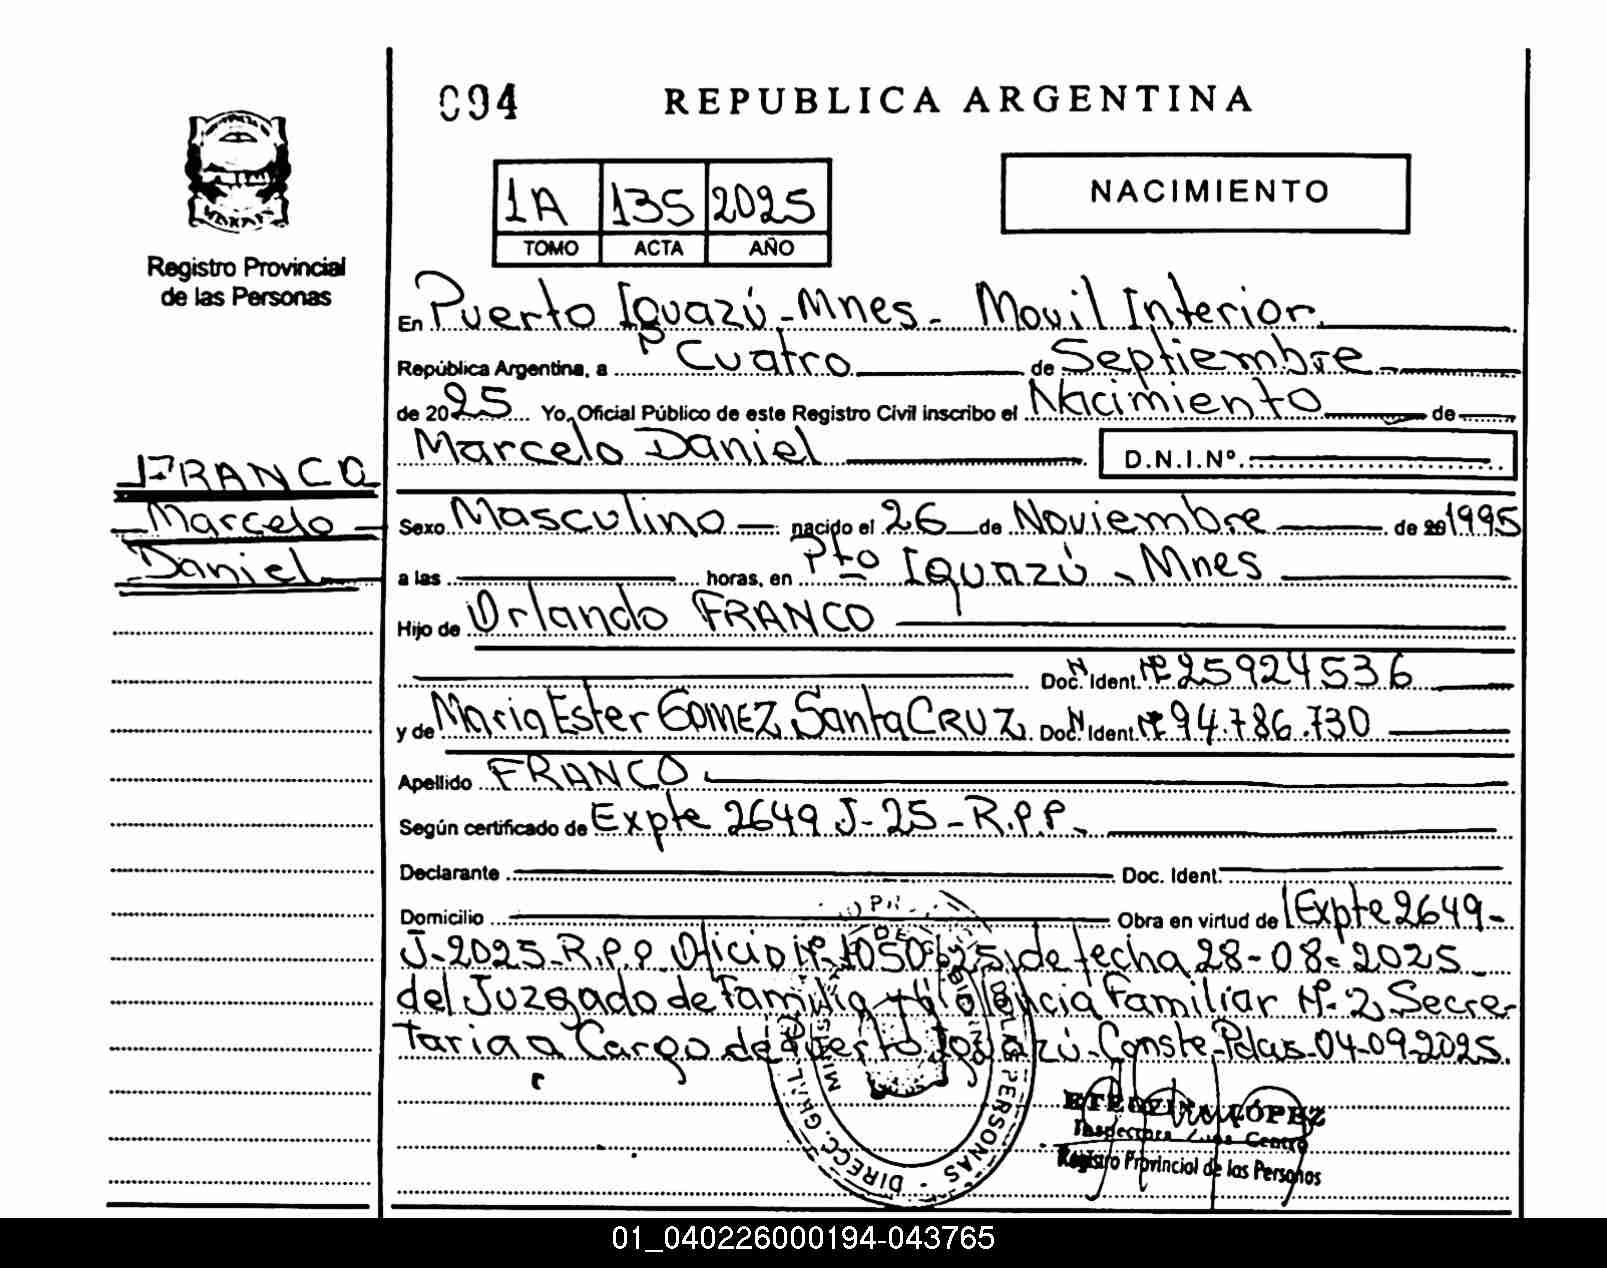 094
REPUBLICA ARGENTINA
1A 135 2025
TOMO ACTA AÑO
NACIMIENTO
Registro Provincial
de las Personas
En Puerto Iguazú - Mnes - Movil Interior
República Argentina, a Cuatro de Septiembre
de 2025 Yo, Oficial Público de este Registro Civil inscribo el Nacimiento de
Marcelo Daniel D.N.I.Nº
FRANCO
Marcelo
Daniel
Sexo Masculino nacido el 26 de Noviembre de 20 1995
a las horas, en Pto Iguazú - Mnes
Hijo de Orlando FRANCO
Doc. Ident. Nº 25924536
y de Maria Ester GOMEZ Santa CRUZ Doc. Ident. Nº 94.786.730
Apellido FRANCO
Según certificado de Expte 2649 J-25-R.P.P.
Declarante Doc. Ident.
Domicilio Obra en virtud de Expte 2649-
J-2025-R.P.P. Oficio Nº 1050/25 de fecha 28-08-2025
del Juzgado de Familia y Violencia Familiar Nº 2, Secre-
taria a Cargo de Puerto Iguazú - Conste - Pdas 04-09-2025.
DIRECC. GRAL. DE LAS PERSONAS
LÓPEZ
Inspectora Zona Centro
Registro Provincial de las Personas
01_040226000194-043765